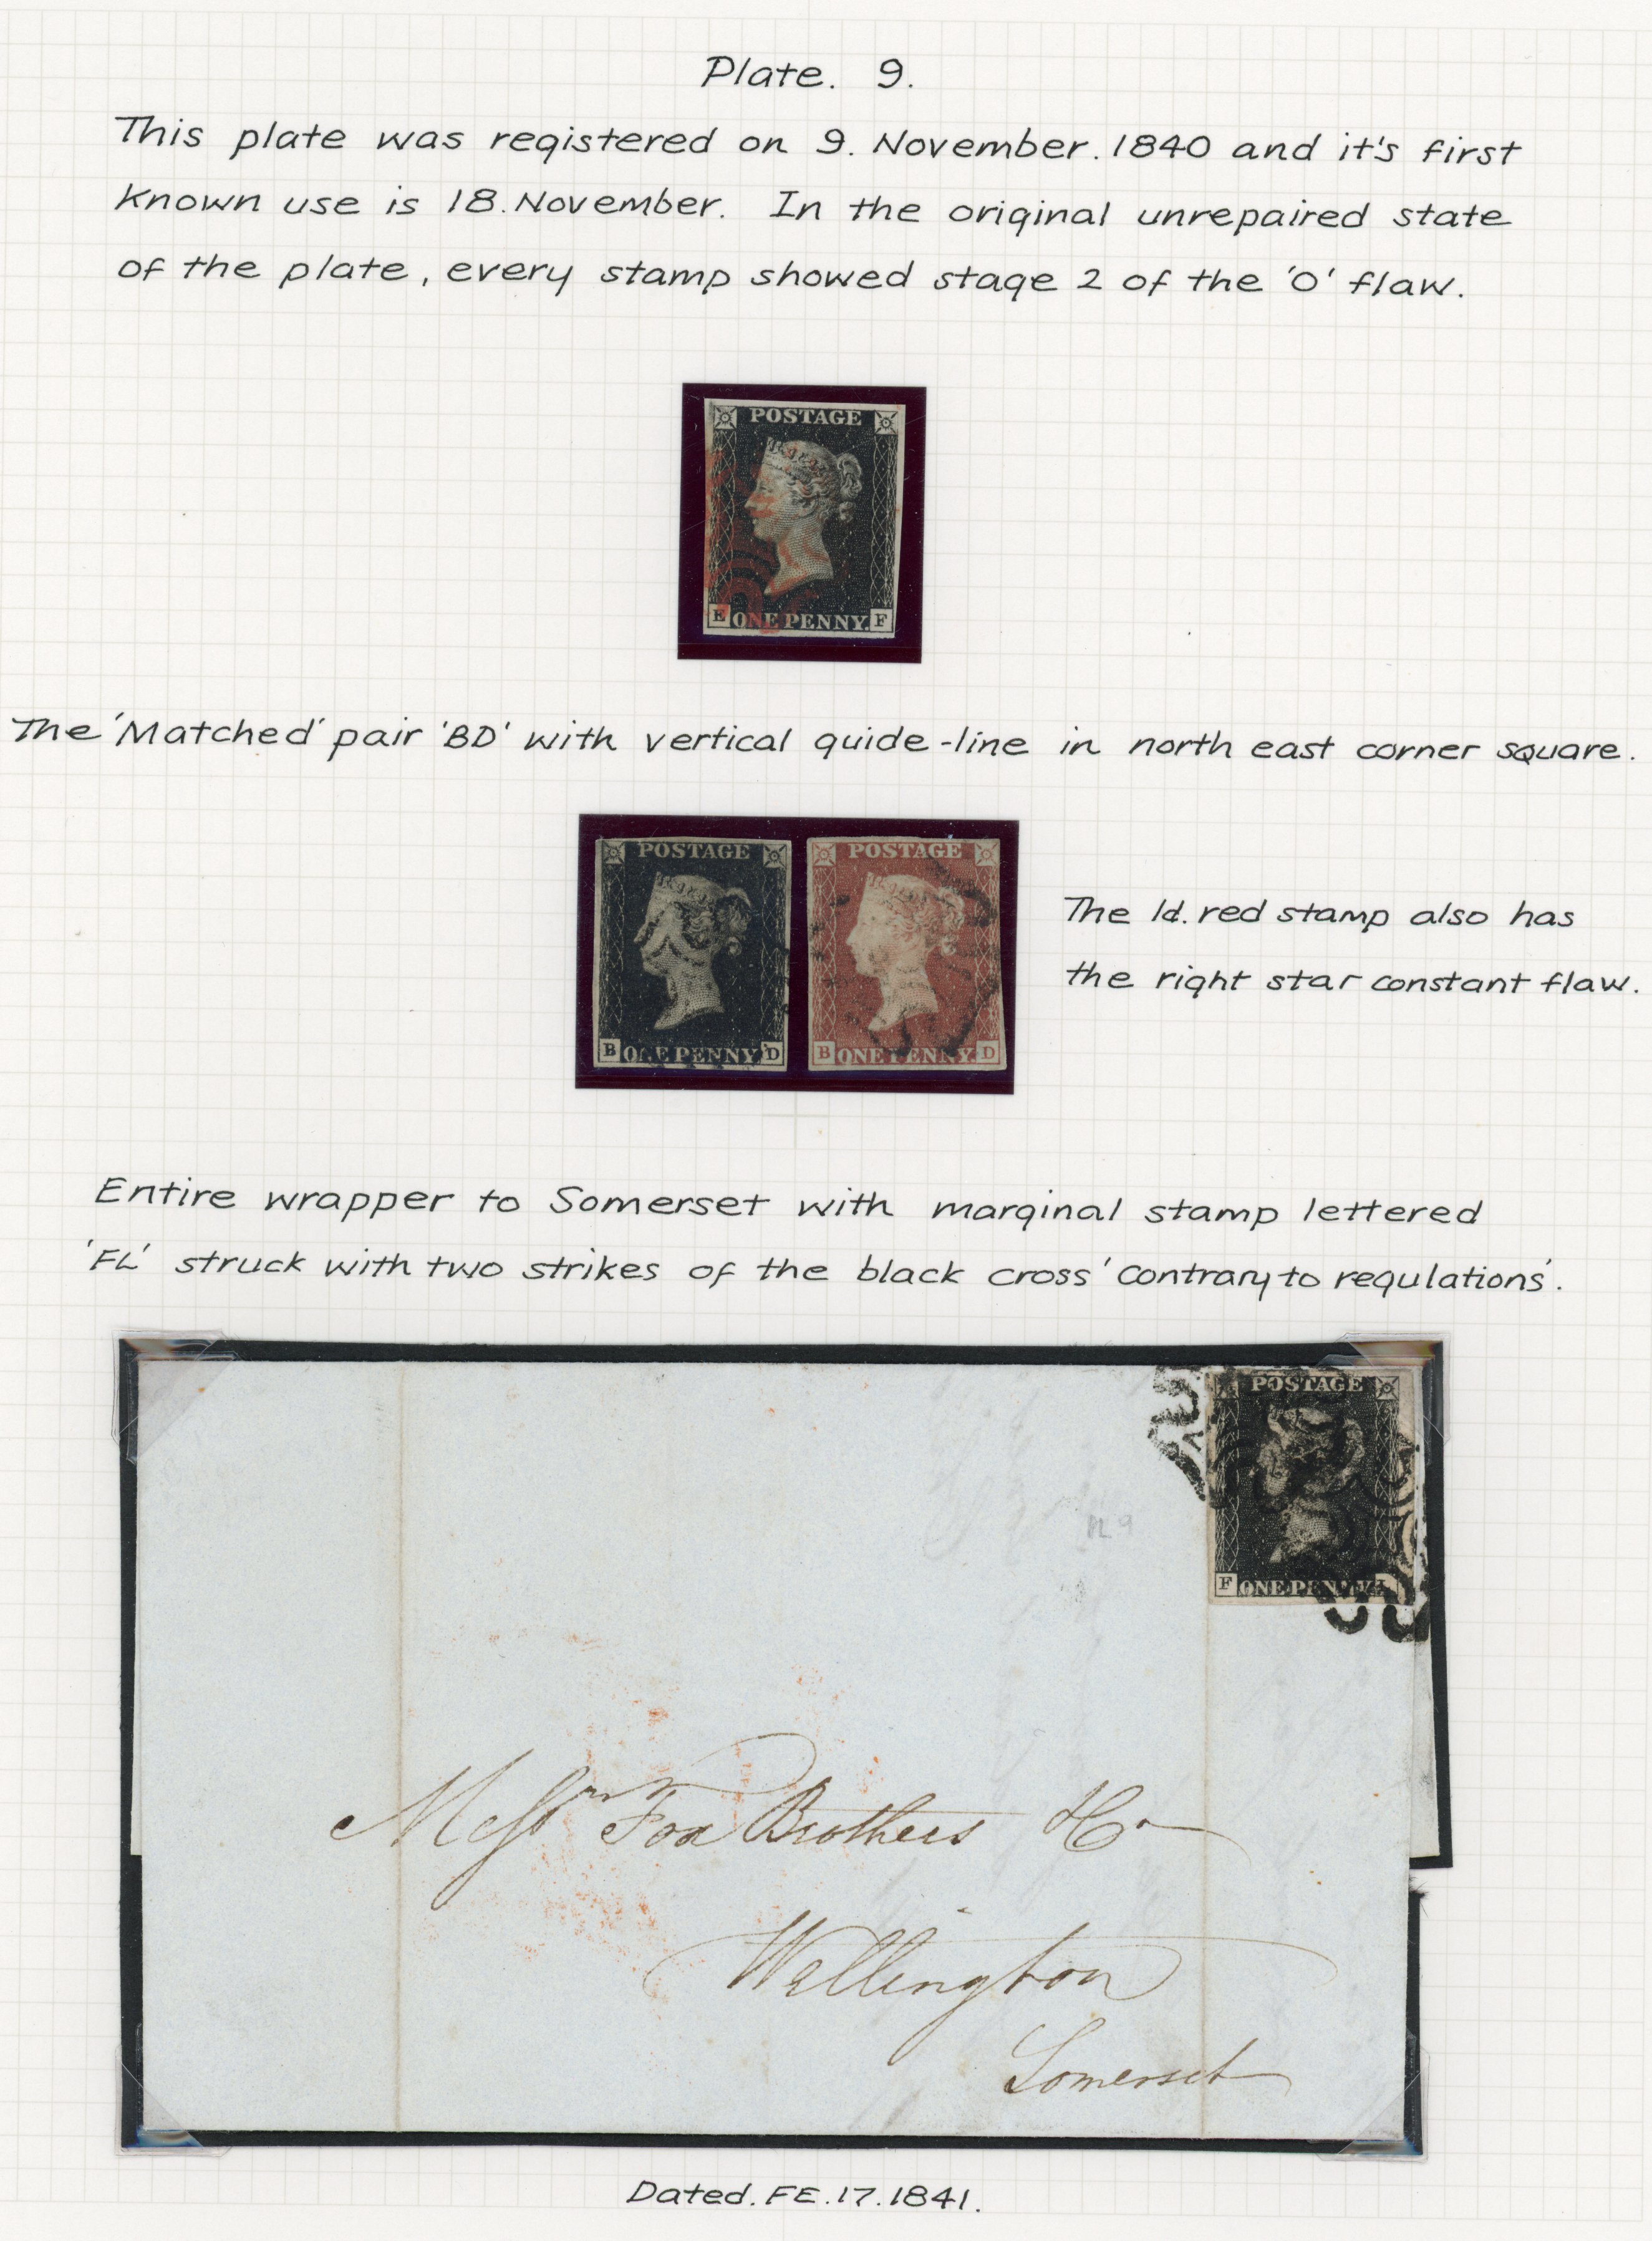 Plate. 9.
This plate was registered on 9. November. 1840 and it's first
known use is 18. November. In the original unrepaired state
of the plate, every stamp showed stage 2 of the 'O' flaw.
POSTAGE
E ONE PENNY. F
The 'Matched' pair 'BD' with vertical guide-line in north east corner square.
POSTAGE
B ONE PENNY. D
POSTAGE
B ONE PENNY. D
The 1d. red stamp also has
the right star constant flaw.
Entire wrapper to Somerset with marginal stamp lettered
'FL' struck with two strikes of the black cross 'contrary to regulations'.
POSTAGE
PL 9
F ONE PENNY. L
Messrs Fox Brothers & Co
Wellington
Somerset
Dated. FE. 17. 1841.